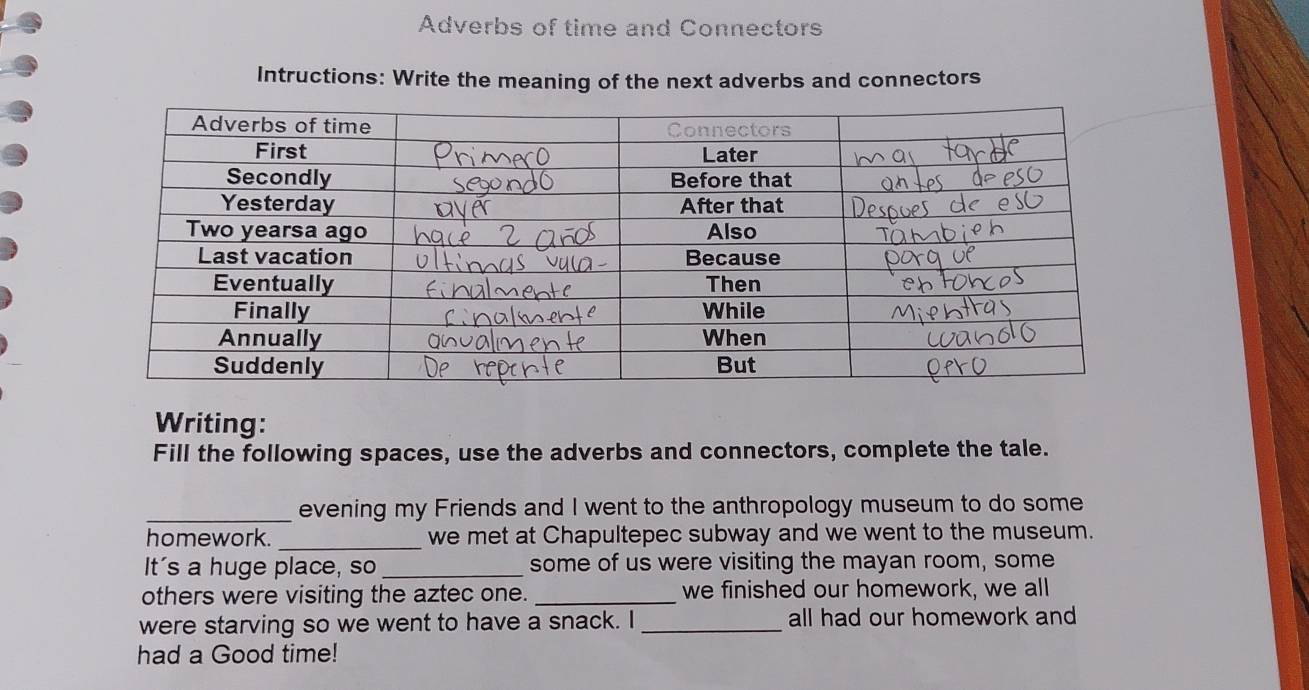 Adverbs of time and Connectors
Intructions: Write the meaning of the next adverbs and connectors
Adverbs of time Connectors
First Primero Later mas tarde
Secondly segondo Before that antes de eso
Yesterday ayer After that Despues de eso
Two yearsa ago hace 2 años Also Tambien
Last vacation ultimas vaca- Because porque
Eventually finalmente Then entonces
Finally finalmente While Mientras
Annually anualmente When cuando
Suddenly De repente But pero
Writing:
Fill the following spaces, use the adverbs and connectors, complete the tale.
__________ evening my Friends and I went to the anthropology museum to do some
homework. __________ we met at Chapultepec subway and we went to the museum.
It´s a huge place, so __________ some of us were visiting the mayan room, some
others were visiting the aztec one. __________ we finished our homework, we all
were starving so we went to have a snack. I __________ all had our homework and
had a Good time!